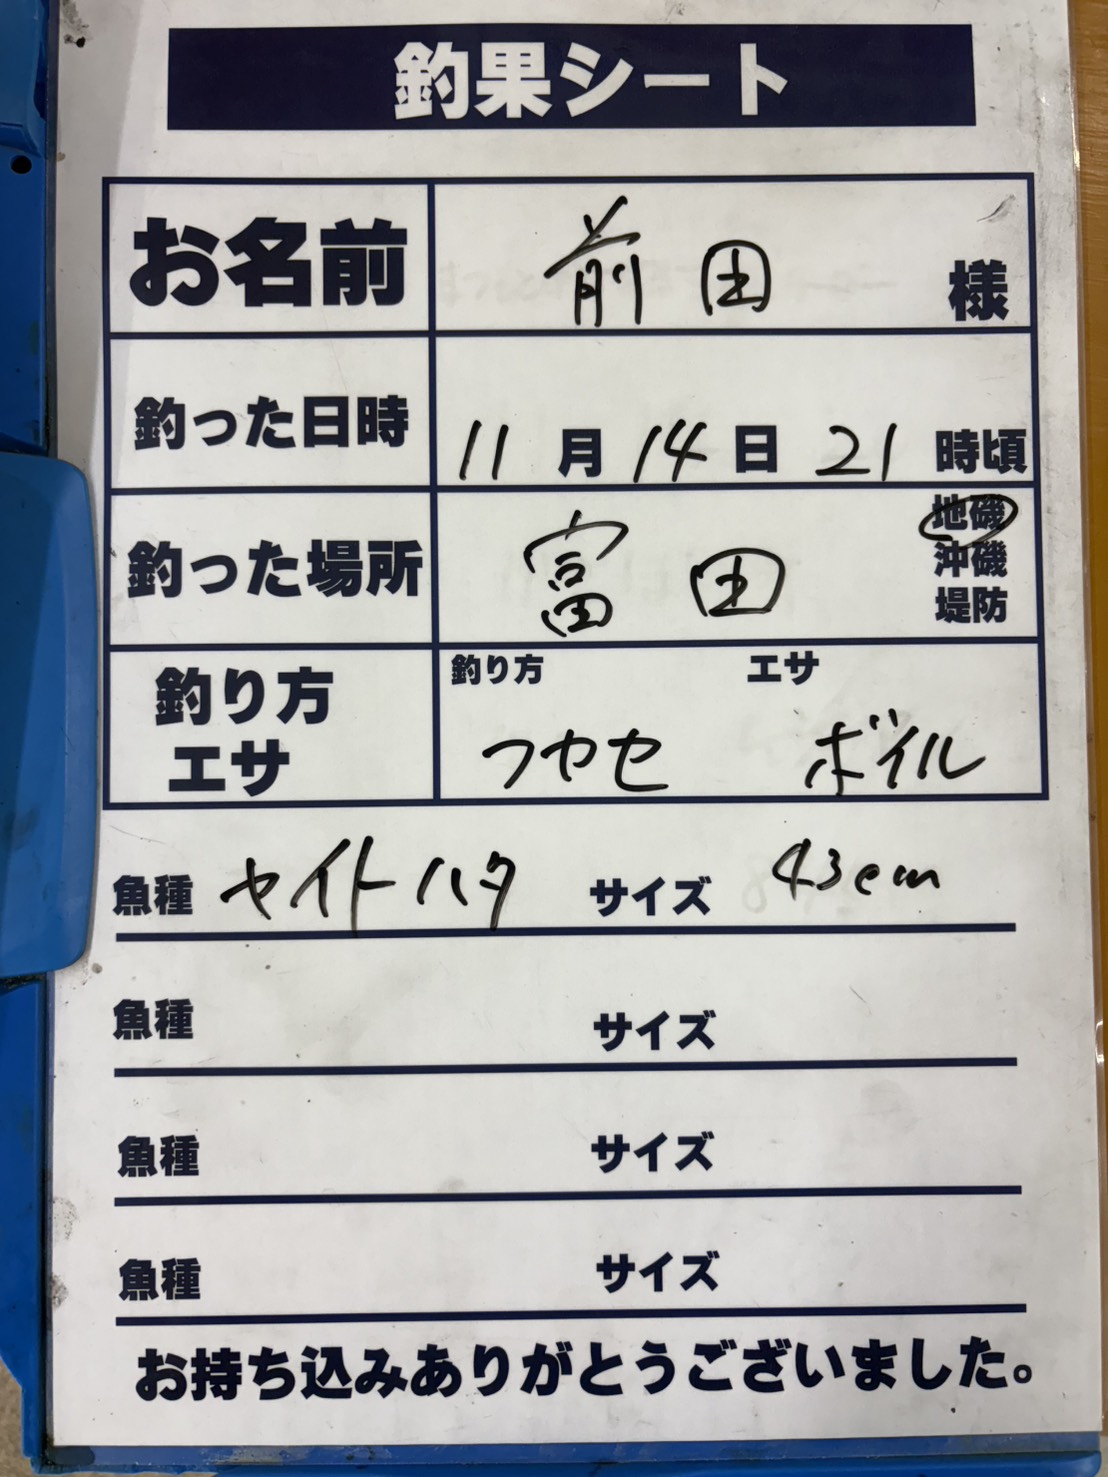 釣果シート
お名前 前田 様
釣った日時 11月14日 21時頃
釣った場所 富田 地磯
沖磯
堤防
釣り方
エサ
釣り方 エサ
フカセ ボイル
魚種 ヤイトハタ サイズ 43cm
魚種 サイズ
魚種 サイズ
魚種 サイズ
お持ち込みありがとうございました。